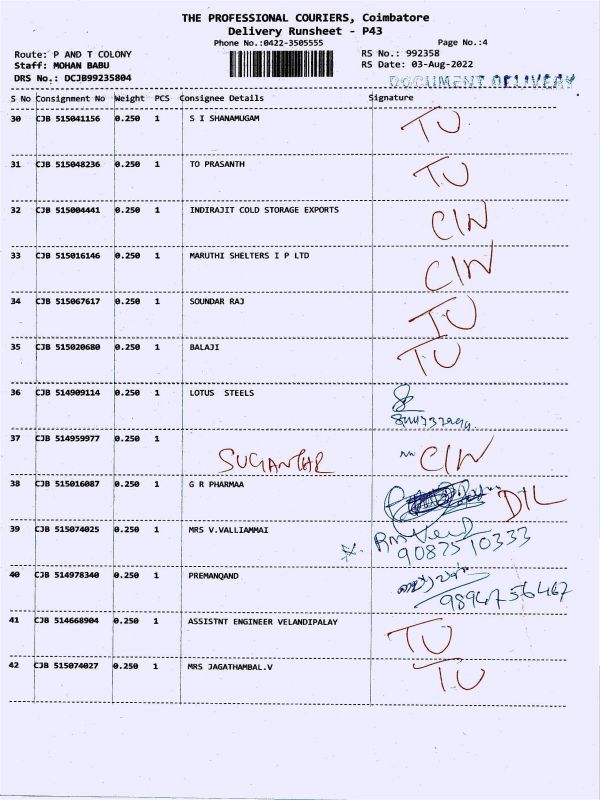 THE PROFESSIONAL COURIERS, Coimbatore
Delivery Runsheet - P43
Phone No.:0422-3505555 Page No.:4
Route: P AND T COLONY RS No.: 992358
Staff: MOHAN BABU RS Date: 03-Aug-2022
DRS No.: DCJB99235804 DOCUMENT DELIVERY
S No Consignment No Weight PCS Consignee Details Signature
30 CJB 515041156 0.250 1 S I SHANAMUGAM TU
31 CJB 515048236 0.250 1 TO PRASANTH TU
32 CJB 515004441 0.250 1 INDIRAJIT COLD STORAGE EXPORTS CIN
33 CJB 515016146 0.250 1 MARUTHI SHELTERS I P LTD CIN
34 CJB 515067617 0.250 1 SOUNDAR RAJ TU
35 CJB 515020680 0.250 1 BALAJI TU
36 CJB 514909114 0.250 1 LOTUS STEELS
37 CJB 514959977 0.250 1 CIN
38 CJB 515016087 0.250 1 G R PHARMAA DIL
39 CJB 515074025 0.250 1 MRS V.VALLIAMMAI
9087510333
40 CJB 514978340 0.250 1 PREMANQAND
9894756467
41 CJB 514668904 0.250 1 ASSISTNT ENGINEER VELANDIPALAY TU
42 CJB 515074027 0.250 1 MRS JAGATHAMBAL.V TU